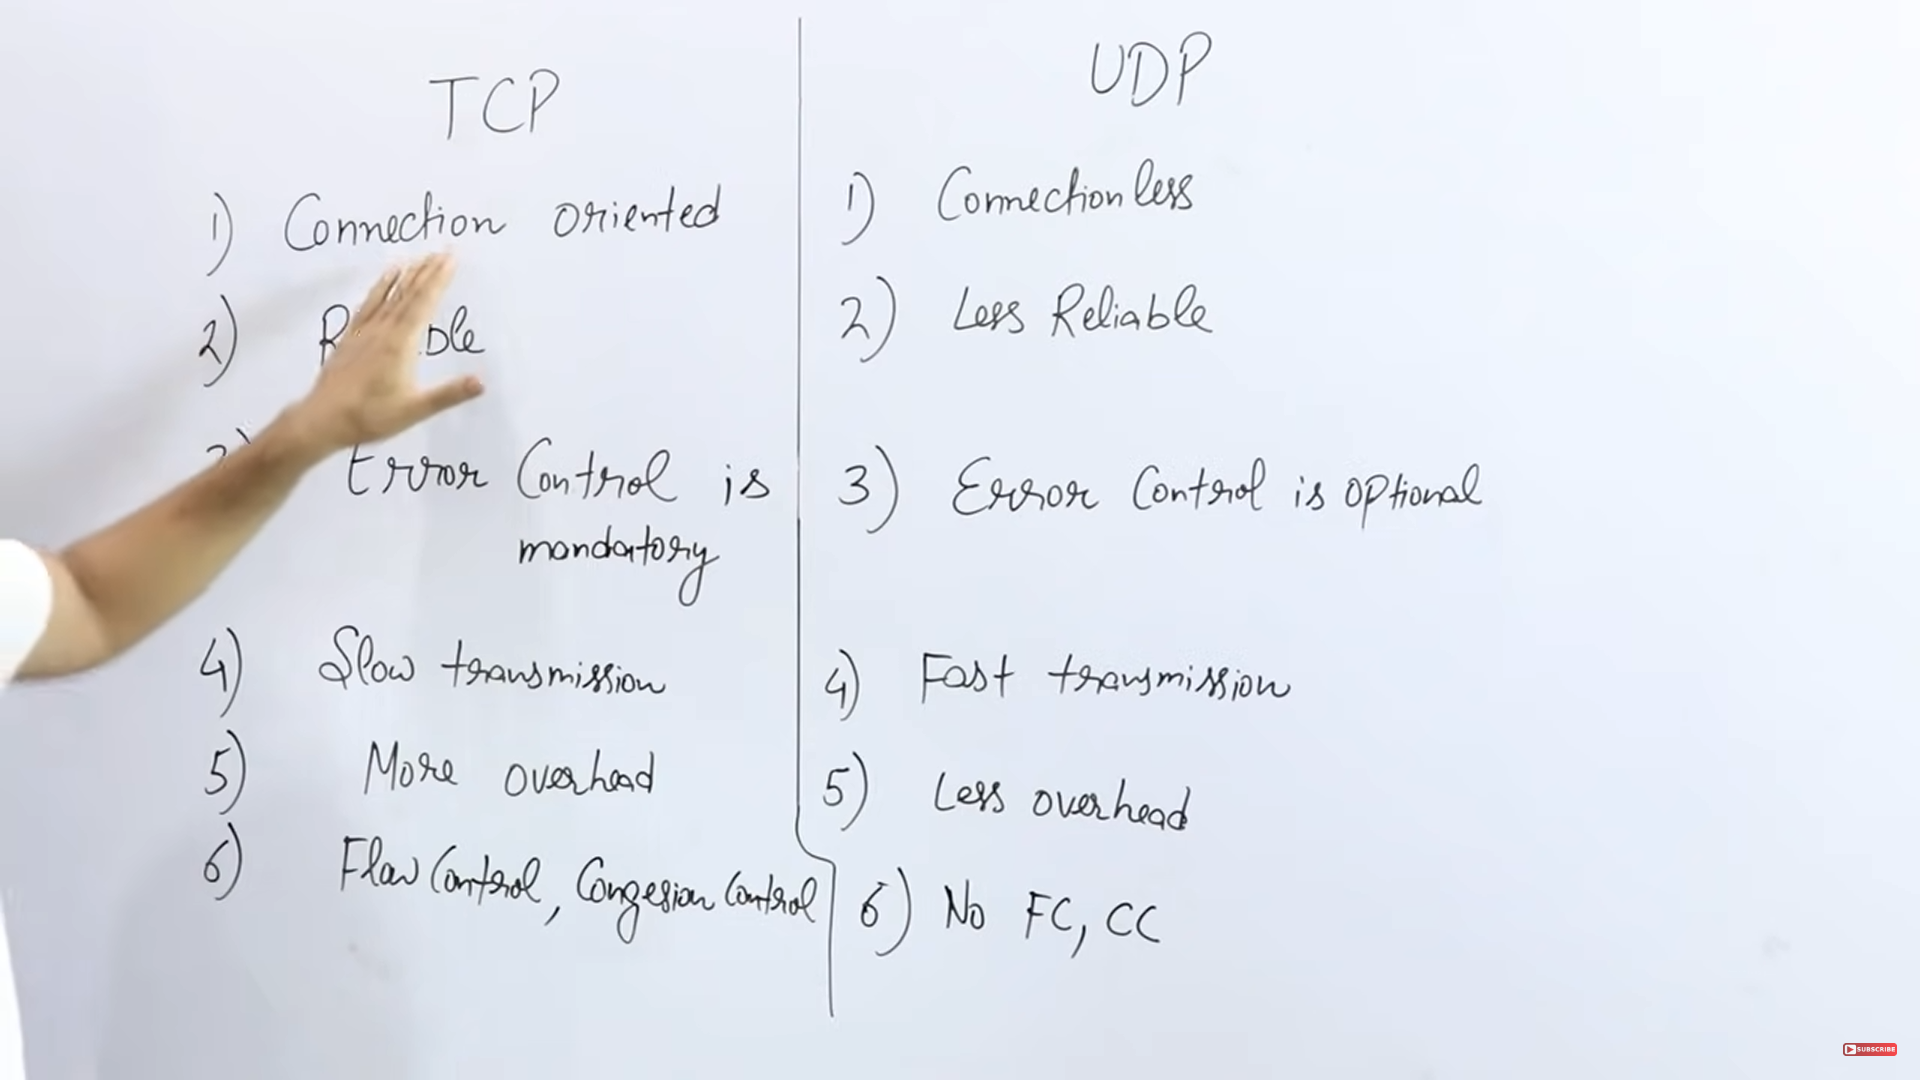 TCP
1) Connection oriented
2)
Error Control is
mandatory
4) Slow transmission
5) More overhead
6) Flow Control, Congesion Control
UDP
1) Connectionless
2) Less Reliable
3) Error Control is optional
4) Fast transmission
5) Less overhead
6) No FC, CC
SUBSCRIBE